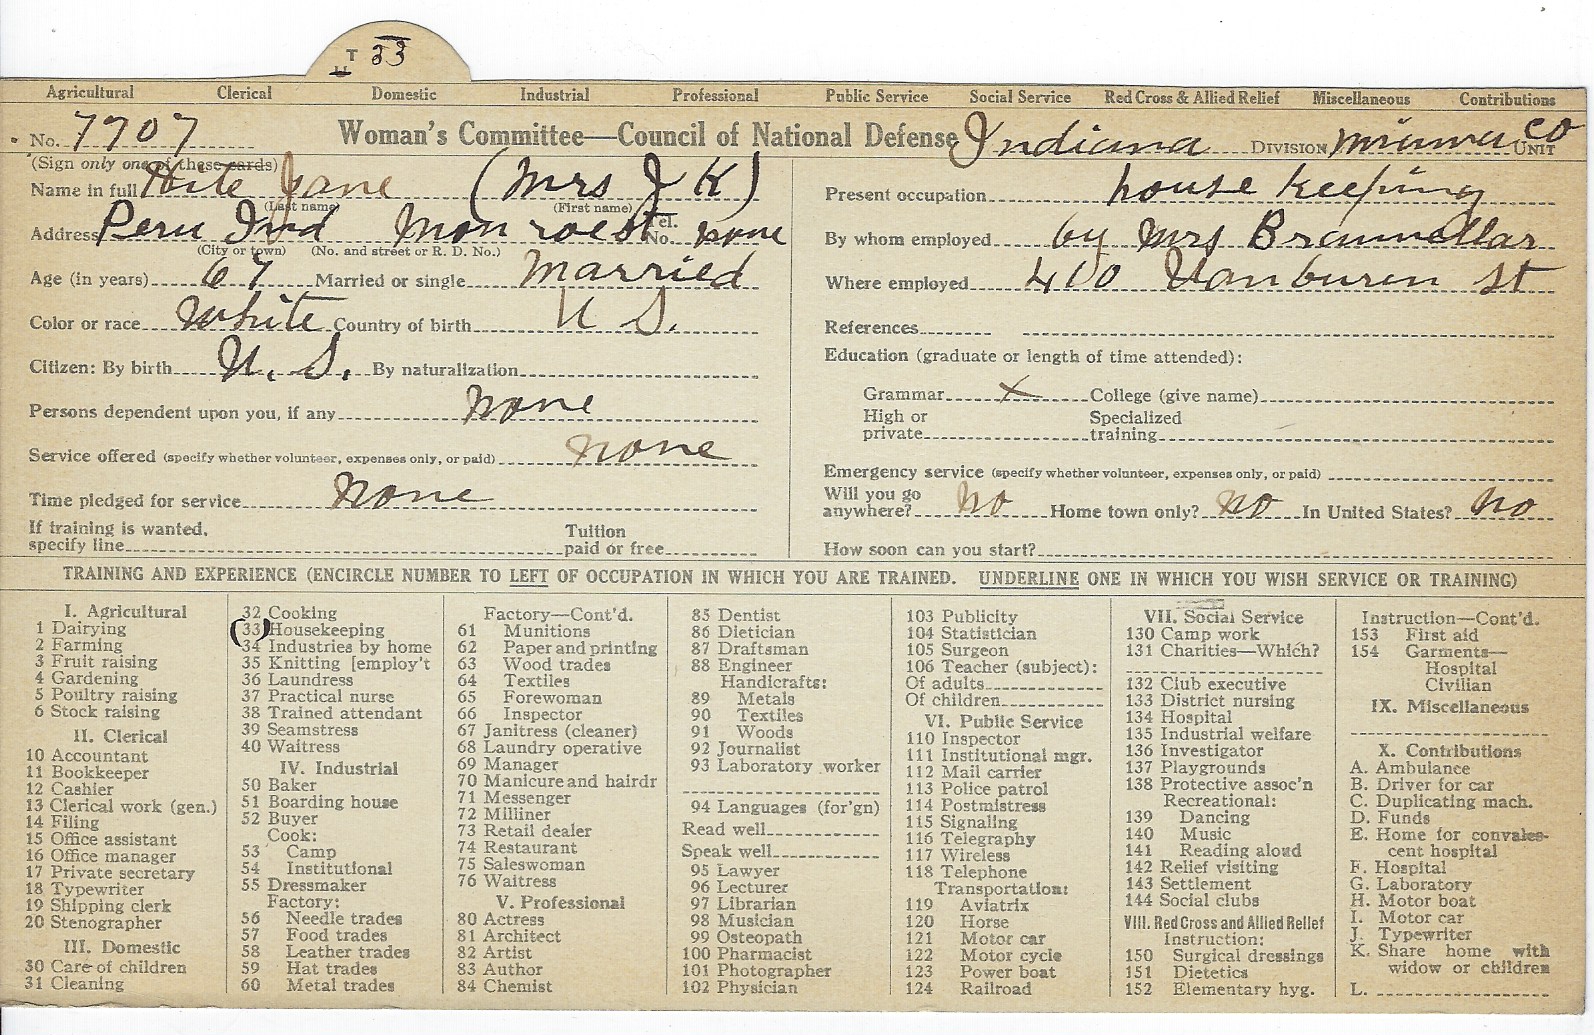 T 33
U
Agricultural Clerical Domestic Industrial Professional Public Service Social Service Red Cross & Allied Relief Miscellaneous Contributions
No. 7707 Woman's Committee—Council of National Defense Indiana DIVISION Miami Co UNIT
(Sign only one of these cards)
Name in full Hite Jane (Mrs J K)
(Last name) (First name)
Address Peru Ind Monroe st Tel. No. none
(City or town) (No. and street or R. D. No.)
Age (in years) 67 Married or single married
Color or race White Country of birth U S.
Citizen: By birth U. S. By naturalization
Persons dependent upon you, if any none
Service offered (specify whether volunteer, expenses only, or paid) none
Time pledged for service none
If training is wanted, specify line Tuition paid or free
Present occupation house keeping
By whom employed by Mrs
Where employed 410 Vanburen st
References
Education (graduate or length of time attended):
Grammar x College (give name)
High or private Specialized training
Emergency service (specify whether volunteer, expenses only, or paid)
Will you go anywhere? no Home town only? no In United States? no
How soon can you start?
TRAINING AND EXPERIENCE (ENCIRCLE NUMBER TO LEFT OF OCCUPATION IN WHICH YOU ARE TRAINED. UNDERLINE ONE IN WHICH YOU WISH SERVICE OR TRAINING)
I. Agricultural
1 Dairying
2 Farming
3 Fruit raising
4 Gardening
5 Poultry raising
6 Stock raising
II. Clerical
10 Accountant
11 Bookkeeper
12 Cashier
13 Clerical work (gen.)
14 Filing
15 Office assistant
16 Office manager
17 Private secretary
18 Typewriter
19 Shipping clerk
20 Stenographer
III. Domestic
30 Care of children
31 Cleaning
32 Cooking
(33) Housekeeping
34 Industries by home
35 Knitting [employ't
36 Laundress
37 Practical nurse
38 Trained attendant
39 Seamstress
40 Waitress
IV. Industrial
50 Baker
51 Boarding house
52 Buyer
Cook:
53 Camp
54 Institutional
55 Dressmaker
Factory:
56 Needle trades
57 Food trades
58 Leather trades
59 Hat trades
60 Metal trades
Factory—Cont'd.
61 Munitions
62 Paper and printing
63 Wood trades
64 Textiles
65 Forewoman
66 Inspector
67 Janitress (cleaner)
68 Laundry operative
69 Manager
70 Manicure and hairdr
71 Messenger
72 Milliner
73 Retail dealer
74 Restaurant
75 Saleswoman
76 Waitress
V. Professional
80 Actress
81 Architect
82 Artist
83 Author
84 Chemist
85 Dentist
86 Dietician
87 Draftsman
88 Engineer
Handicrafts:
89 Metals
90 Textiles
91 Woods
92 Journalist
93 Laboratory worker
94 Languages (for'gn)
Read well
Speak well
95 Lawyer
96 Lecturer
97 Librarian
98 Musician
99 Osteopath
100 Pharmacist
101 Photographer
102 Physician
103 Publicity
104 Statistician
105 Surgeon
106 Teacher (subject):
Of adults
Of children
VI. Public Service
110 Inspector
111 Institutional mgr.
112 Mail carrier
113 Police patrol
114 Postmistress
115 Signaling
116 Telegraphy
117 Wireless
118 Telephone
Transportation:
119 Aviatrix
120 Horse
121 Motor car
122 Motor cycle
123 Power boat
124 Railroad
VII. Social Service
130 Camp work
131 Charities—Which?
132 Club executive
133 District nursing
134 Hospital
135 Industrial welfare
136 Investigator
137 Playgrounds
138 Protective assoc'n
Recreational:
139 Dancing
140 Music
141 Reading aloud
142 Relief visiting
143 Settlement
144 Social clubs
VIII. Red Cross and Allied Relief
Instruction:
150 Surgical dressings
151 Dietetics
152 Elementary hyg.
Instruction—Cont'd.
153 First aid
154 Garments—
Hospital
Civilian
IX. Miscellaneous
X. Contributions
A. Ambulance
B. Driver for car
C. Duplicating mach.
D. Funds
E. Home for convales-
cent hospital
F. Hospital
G. Laboratory
H. Motor boat
I. Motor car
J. Typewriter
K. Share home with
widow or children
L.